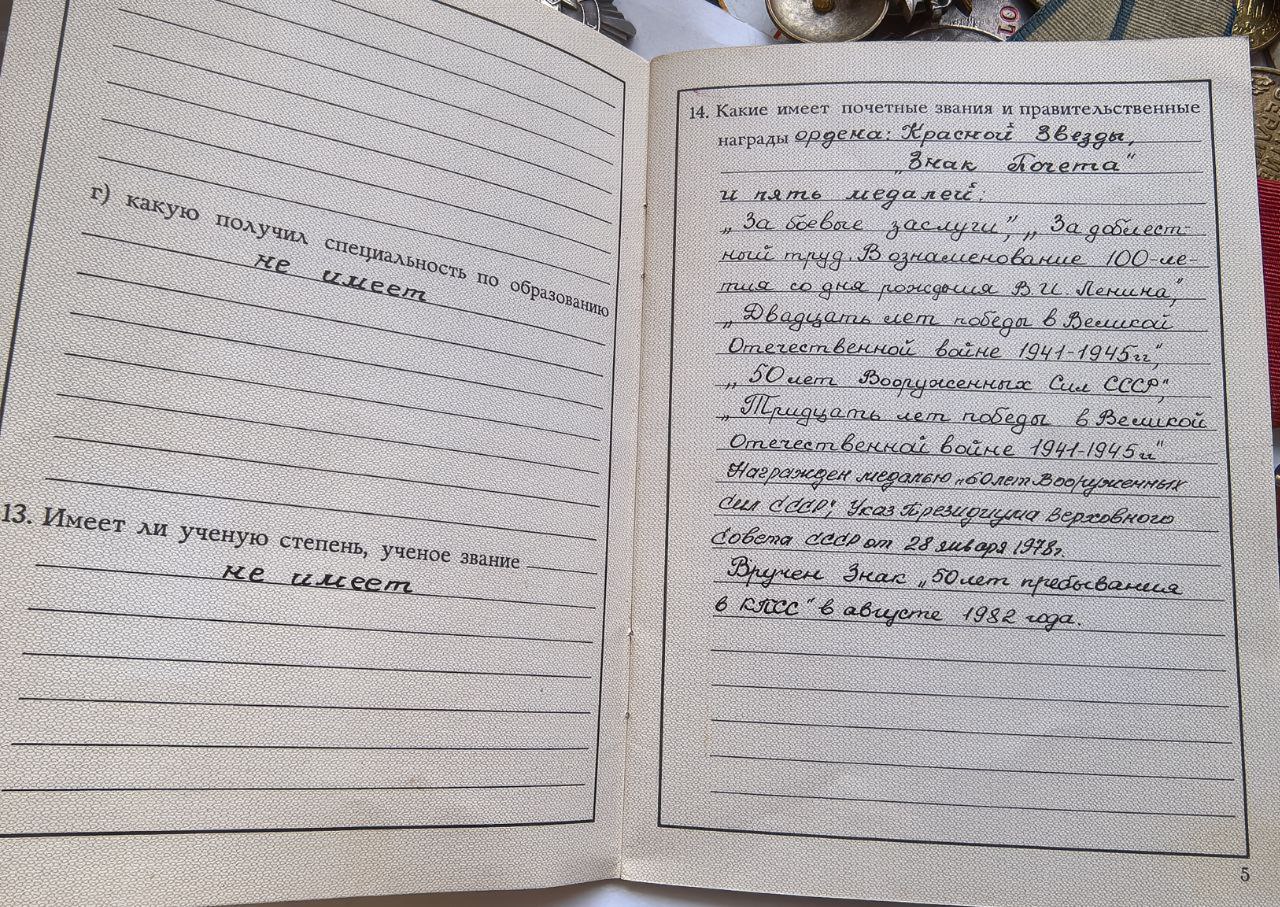 г) какую получил специальность по образованию
не имеет
13. Имеет ли ученую степень, ученое звание
не имеет
14. Какие имеет почетные звания и правительственные
награды ордена: Красной Звезды,
„Знак Почета"
и пять медалей:
„За боевые заслуги", „За доблест-
ный труд. В ознаменование 100-ле-
тия со дня рождения В.И. Ленина",
„Двадцать лет победы в Великой
Отечественной войне 1941-1945гг",
„50 лет Вооруженных Сил СССР",
„Тридцать лет победы в Великой
Отечественной войне 1941-1945гг"
Награжден медалью „60 лет Вооруженных
Сил СССР", Указ Президиума Верховного
Совета СССР от 28 января 1978г.
Вручен Знак „50 лет пребывания
в КПСС" в августе 1982 года.
5